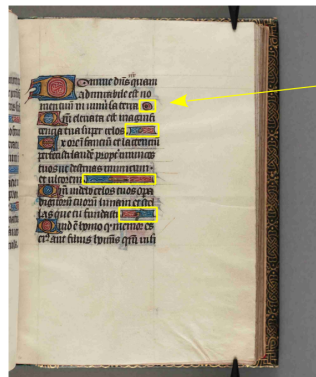 Domine dñs quam
admirabile est no
men tuum in uniũsa terra
Qm̃ eleuata est magnifi
tentia tua super celos
Ex ore infantiũ et lactentiũ
perfecisti laudẽ propter inimicos
tuos ut destruas inimicum
et ultorem
Qm̃ uidebo celos tuos opa
digitorũ tuorũ lunam et stel
las que tu fundasti
Quid ẽ homo q memor es
ei aut filius homĩs qm̃ uisi